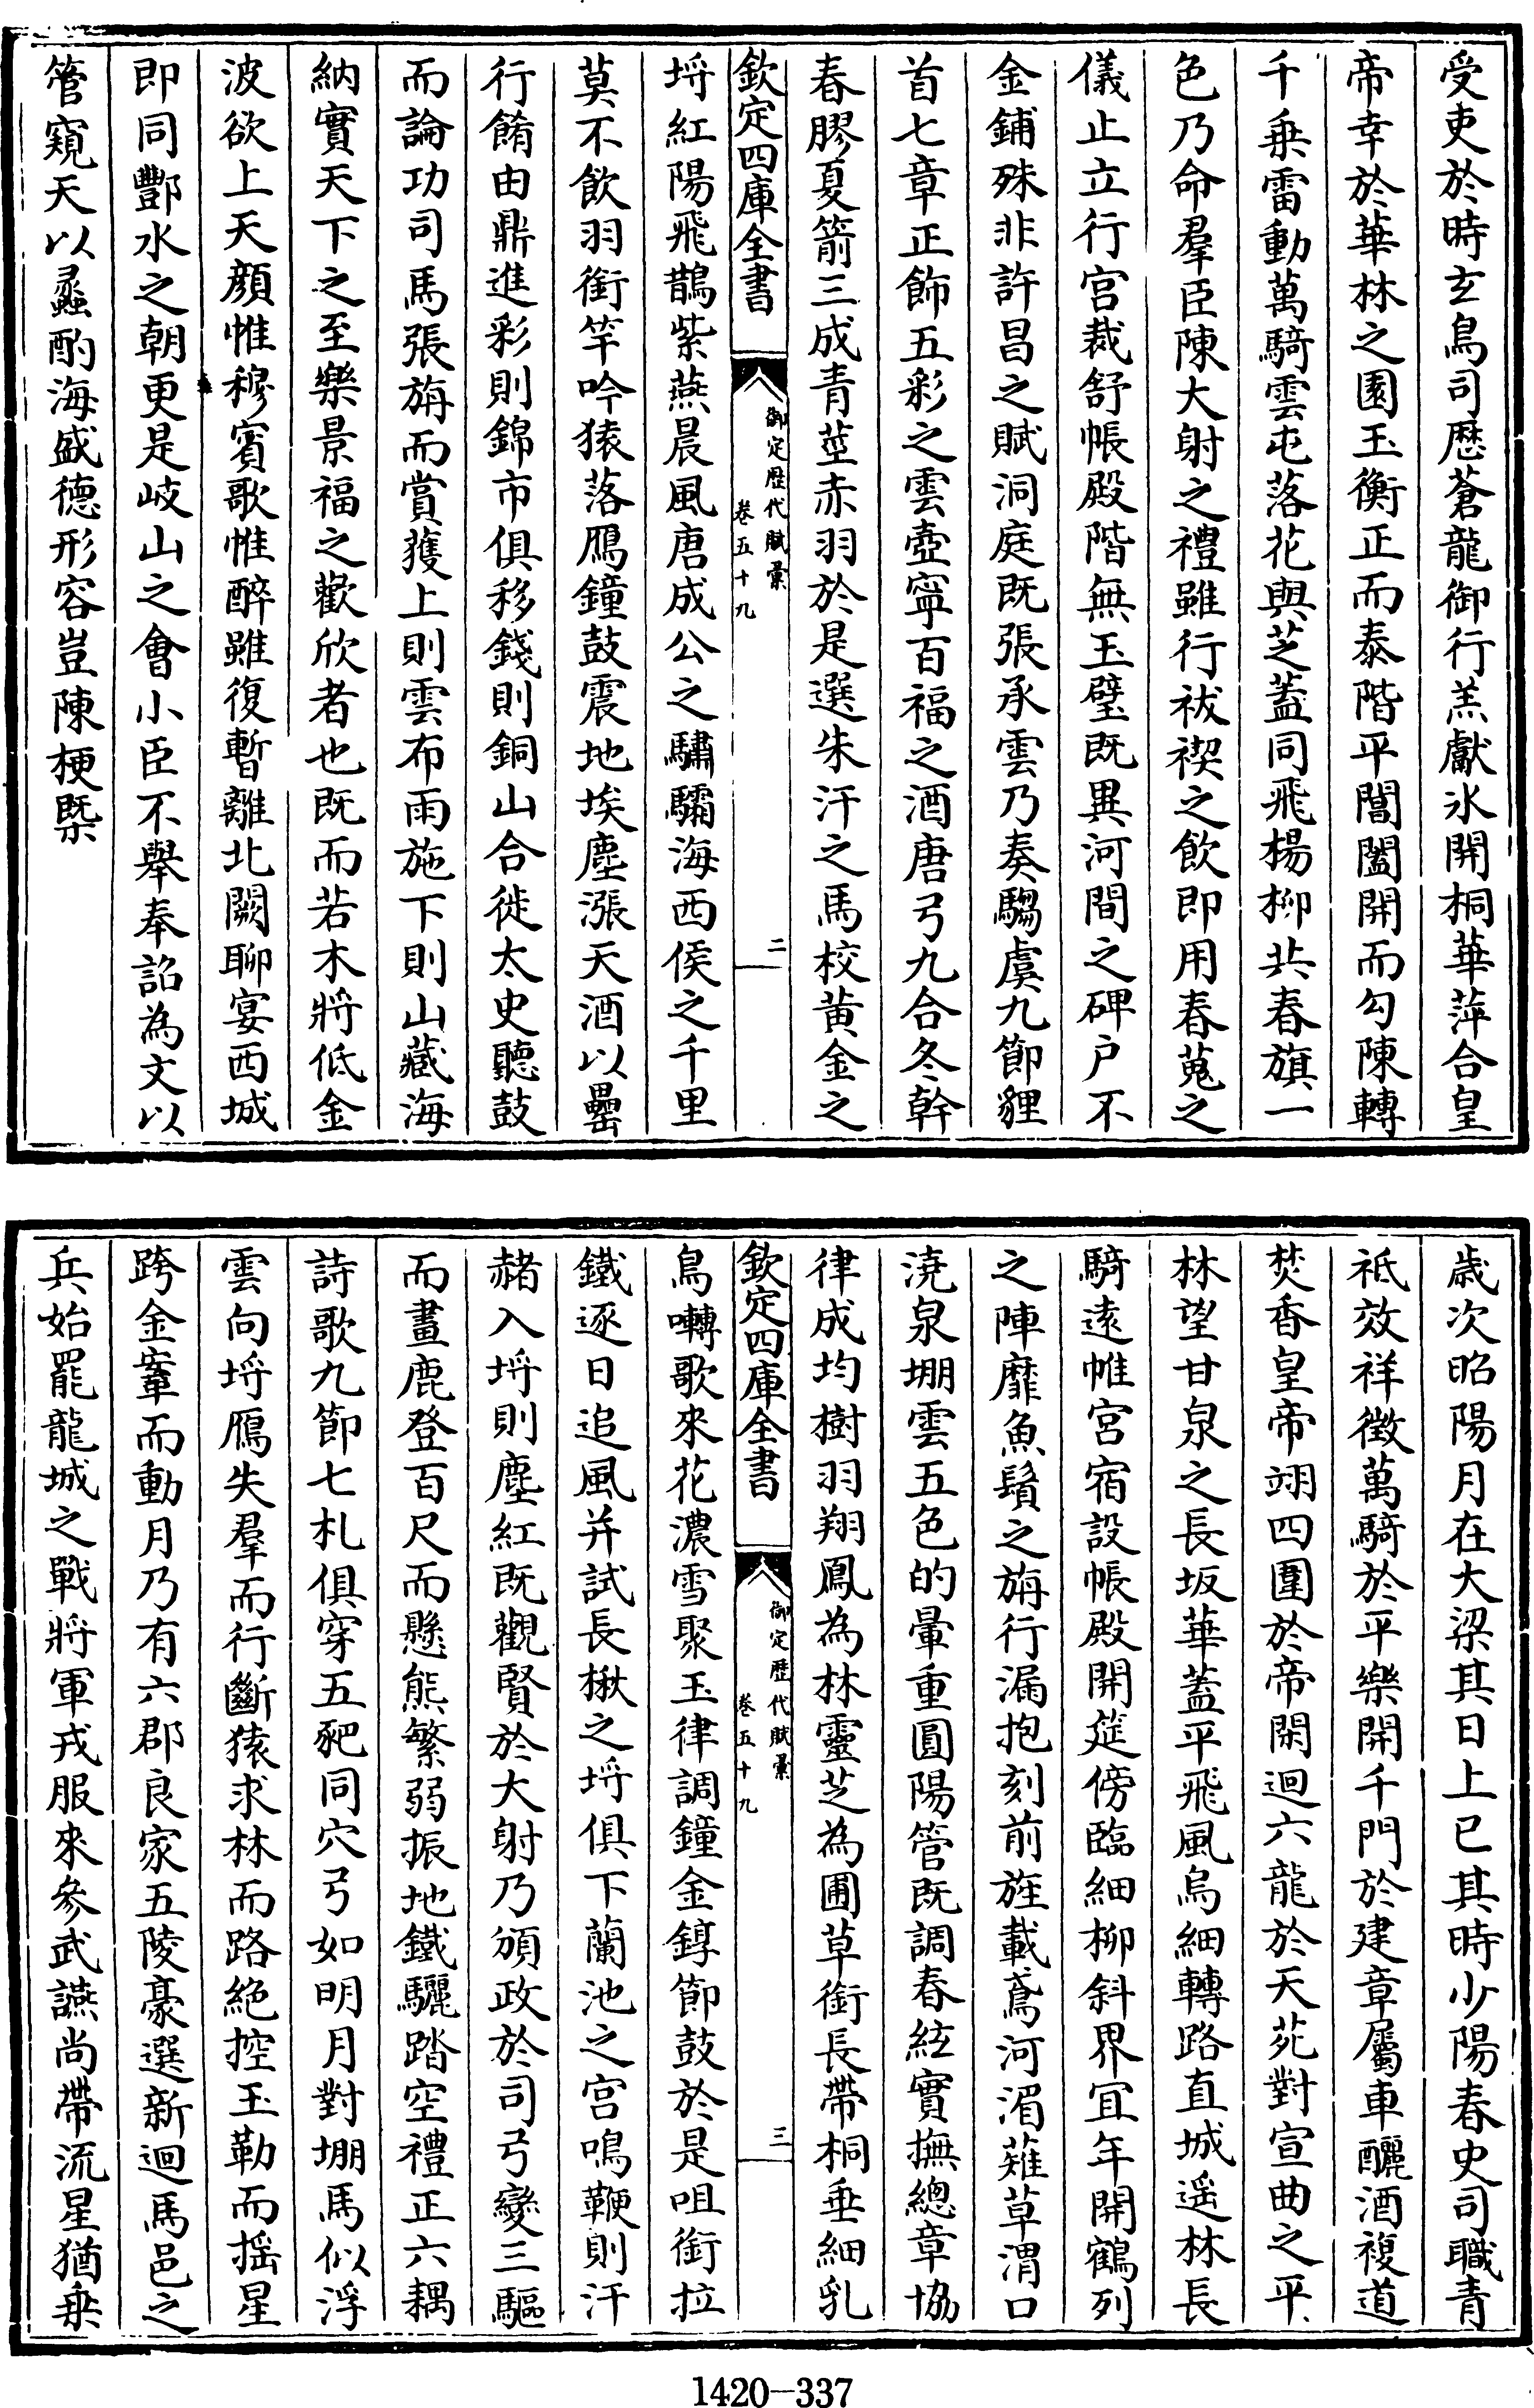 受吏於時玄鳥司厯蒼龍御行羔獻氷開桐華萍合皇
帝幸於華林之園玉衡正而泰階平閶闔開而勾陳轉
千乗雷動萬騎雲屯落花與芝蓋同飛楊柳共春旗一
色乃命羣臣陳大射之禮雖行祓禊之飲即用春蒐之
儀止立行宫裁舒帳殿階無玉璧既異河間之碑户不
金鋪殊非許昌之賦洞庭既張承雲乃奏騶虞九節貍
首七章正飾五彩之雲壺寧百福之酒唐弓九合冬幹
春膠夏箭三成青莖赤羽於是選朱汗之馬校黄金之
欽定四庫全書
御定歴代賦彚
卷五十九
二
埒紅陽飛鵲紫燕晨風唐成公之驌驦海西侯之千里
莫不飲羽銜竿吟猿落鴈鐘鼓震地埃塵漲天酒以罍
行餚由鼎進彩則錦市俱移錢則銅山合徙太史聽鼓
而論功司馬張旃而賞獲上則雲布雨施下則山藏海
納實天下之至樂景福之歡欣者也既而若木將低金
波欲上天顔惟穆賓歌惟醉雖復暫離北闕聊宴西城
即同酆水之朝更是岐山之會小臣不舉奉詔為文以
管窺天以蠡酌海盛德形容豈陳梗槩
歳次昭陽月在大梁其日上巳其時少陽春史司職青
祗效祥徴萬騎於平樂開千門於建章屬車釃酒複道
焚香皇帝翊四圍於帝閑迴六龍於天苑對宣曲之平
林望甘泉之長坂華蓋平飛風烏細轉路直城遥林長
騎遠帷宫宿設帳殿開筵傍臨細柳斜界宜年開鶴列
之陣靡魚鬚之旃行漏抱刻前旌載鳶河湄薙草渭口
澆泉堋雲五色的暈重圓陽管既調春絃實撫總章協
律成均樹羽翔鳳為林靈芝為圃草銜長帶桐垂細乳
欽定四庫全書
御定歴代賦彚
卷五十九
三
鳥囀歌來花濃雪聚玉律調鐘金錞節鼓於是咀銜拉
鐵逐日追風并試長楸之埒俱下蘭池之宫鳴鞭則汗
赭入埒則塵紅既觀賢於大射乃頒政於司弓變三驅
而畫鹿登百尺而懸熊繁弱振地鐵驪踏空禮正六耦
詩歌九節七札俱穿五豝同穴弓如明月對堋馬似浮
雲向埒鴈失羣而行斷猿求林而路絶控玉勒而摇星
跨金鞌而動月乃有六郡良家五陵豪選新迴馬邑之
兵始罷龍城之戰將軍戎服來參武讌尚帶流星猶乗
1420—337